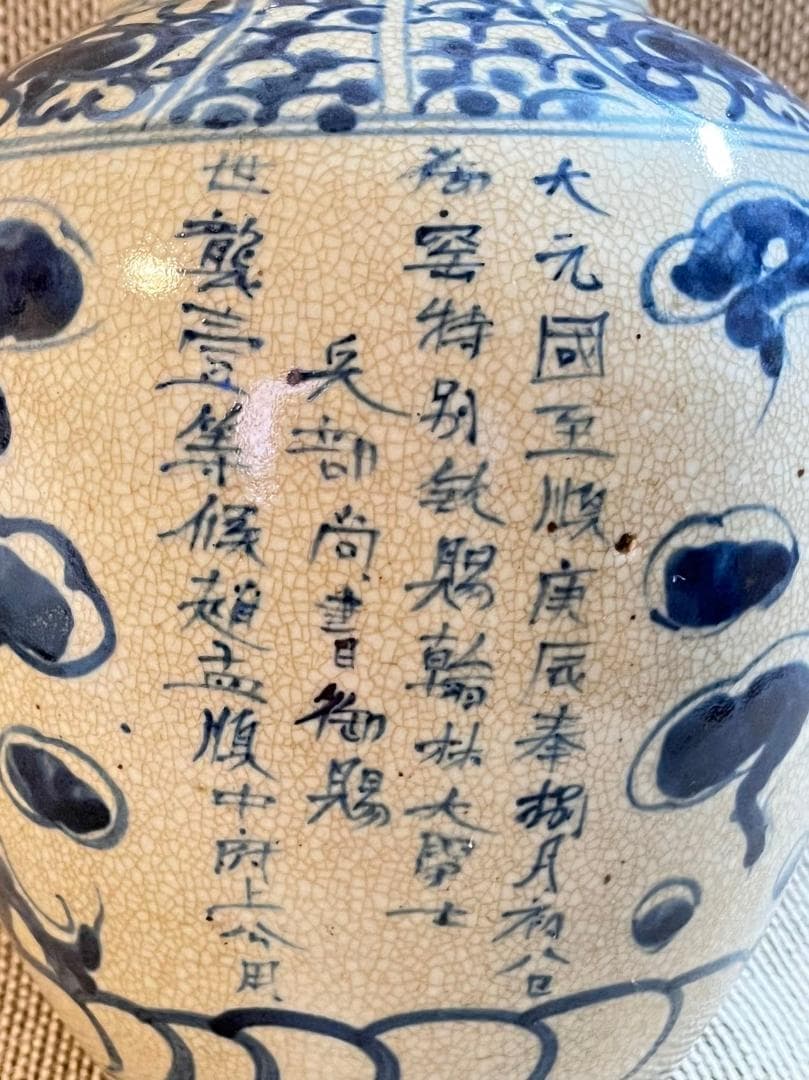 大元國至順庚辰奉捌月初八日
御窑特别欽賜翰林大學士
兵部尚書御賜
世龔壹等候趙孟順中府上公用